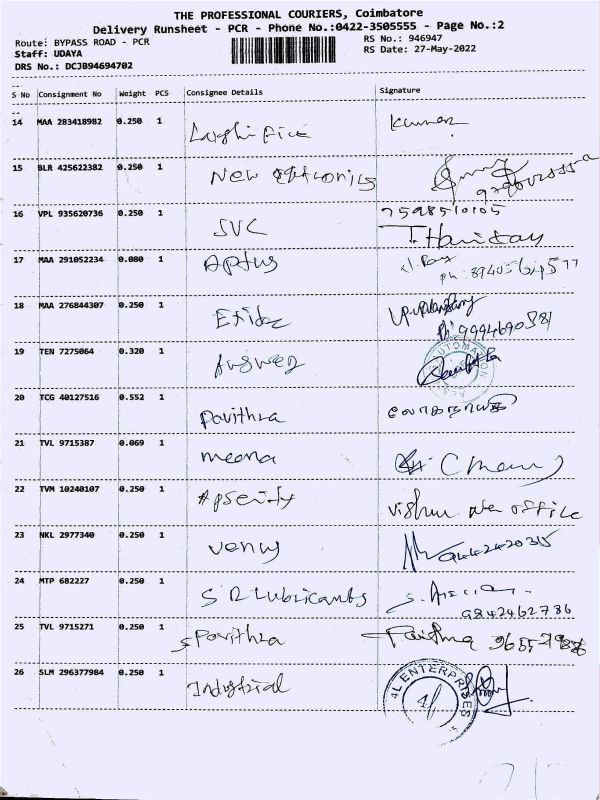 THE PROFESSIONAL COURIERS, Coimbatore
Delivery Runsheet - PCR - Phone No.:0422-3505555 - Page No.:2
Route: BYPASS ROAD - PCR
RS No.: 946947
Staff: UDAYA
RS Date: 27-May-2022
DRS No.: DCJB94694702
S No Consignment No Weight PCS Consignee Details Signature
14 MAA 283418982 0.250 1 Kumar
15 BLR 425622382 0.250 1 New
16 VPL 935620736 0.250 1 SVC 7598510105
T. Harisay
17 MAA 291052234 0.080 1 Aptus
Ph:
18 MAA 276844307 0.250 1
Ph: 9994690581
19 TEN 7275064 0.320 1
AUTOMATION
20 TCG 40127516 0.552 1 Pavithra
21 TVL 9715387 0.069 1 meena
22 TVM 10240107 0.250 1 Vishnu office
23 NKL 2977340 0.250 1 venus 9442420315
24 MTP 682227 0.250 1 S R Lubricants
9842462786
25 TVL 9715271 0.250 1 Pavithra
26 SLM 296377984 0.250 1 Industrial
4L ENTERPRISES